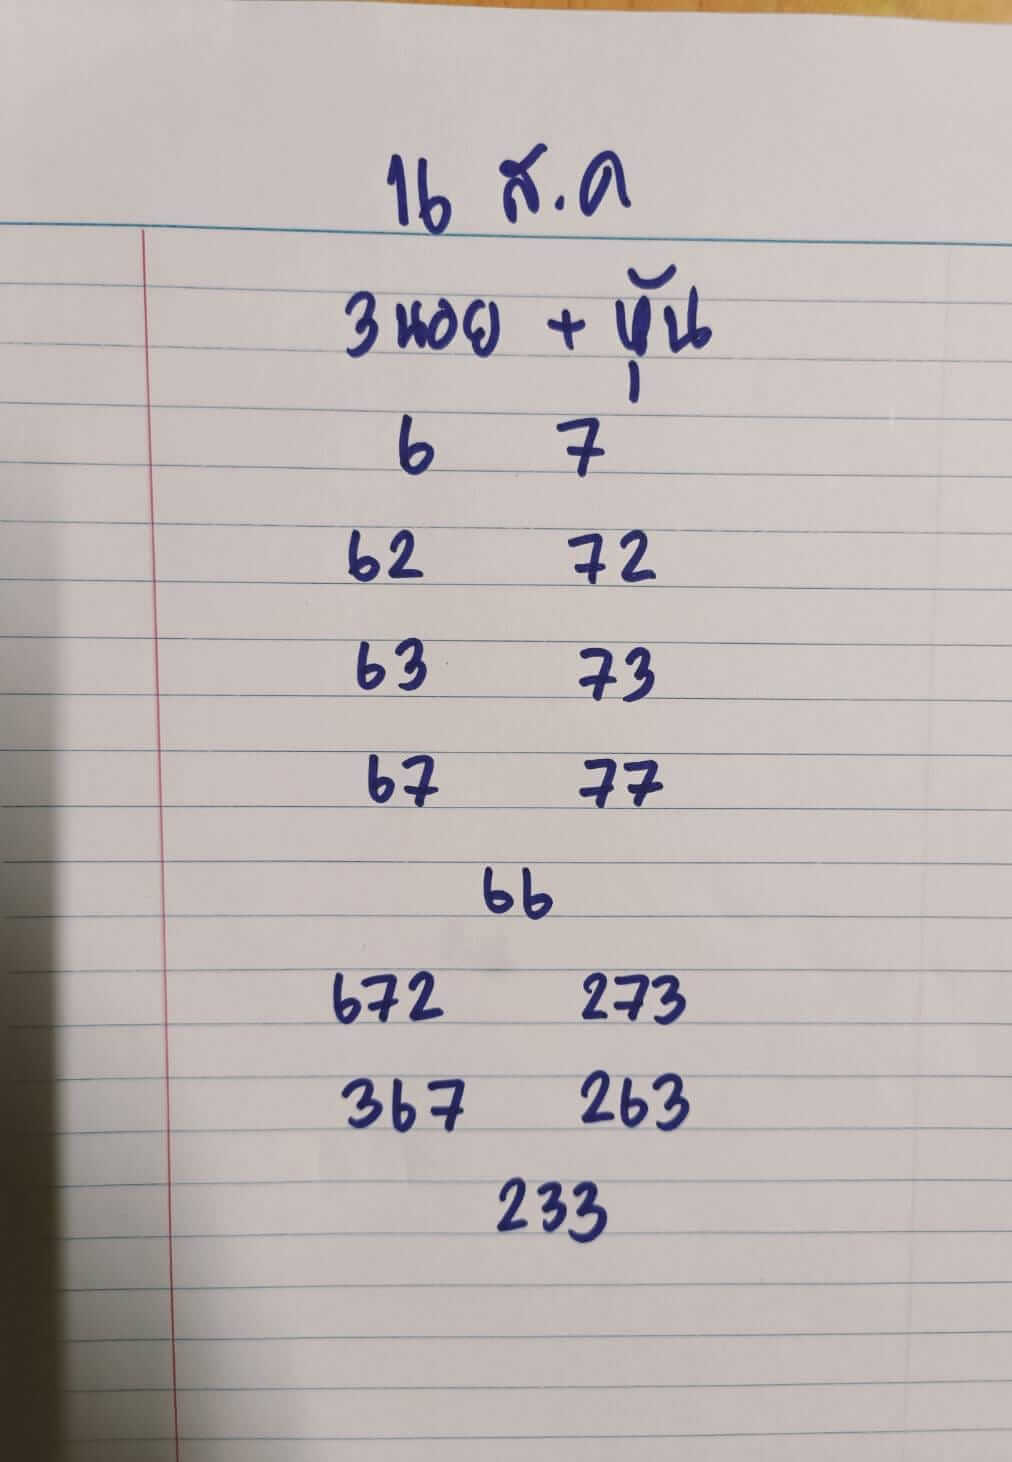 16 ส.ค
3 นอย + หุ้น
6 7
62 72
63 73
67 77
66
672 273
367 263
233